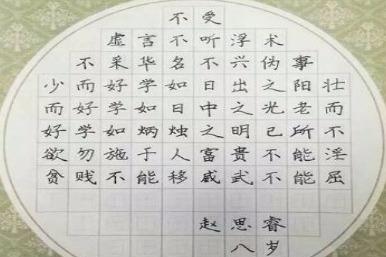 不受
虚言不听浮术
不采华名不兴伪事
少而好学如日出之阳壮
而好学如日中之光老而
好学如炳烛之明己所不
欲勿施于人富貴不能淫
贫贱不能移威武不能屈
赵思睿
八岁